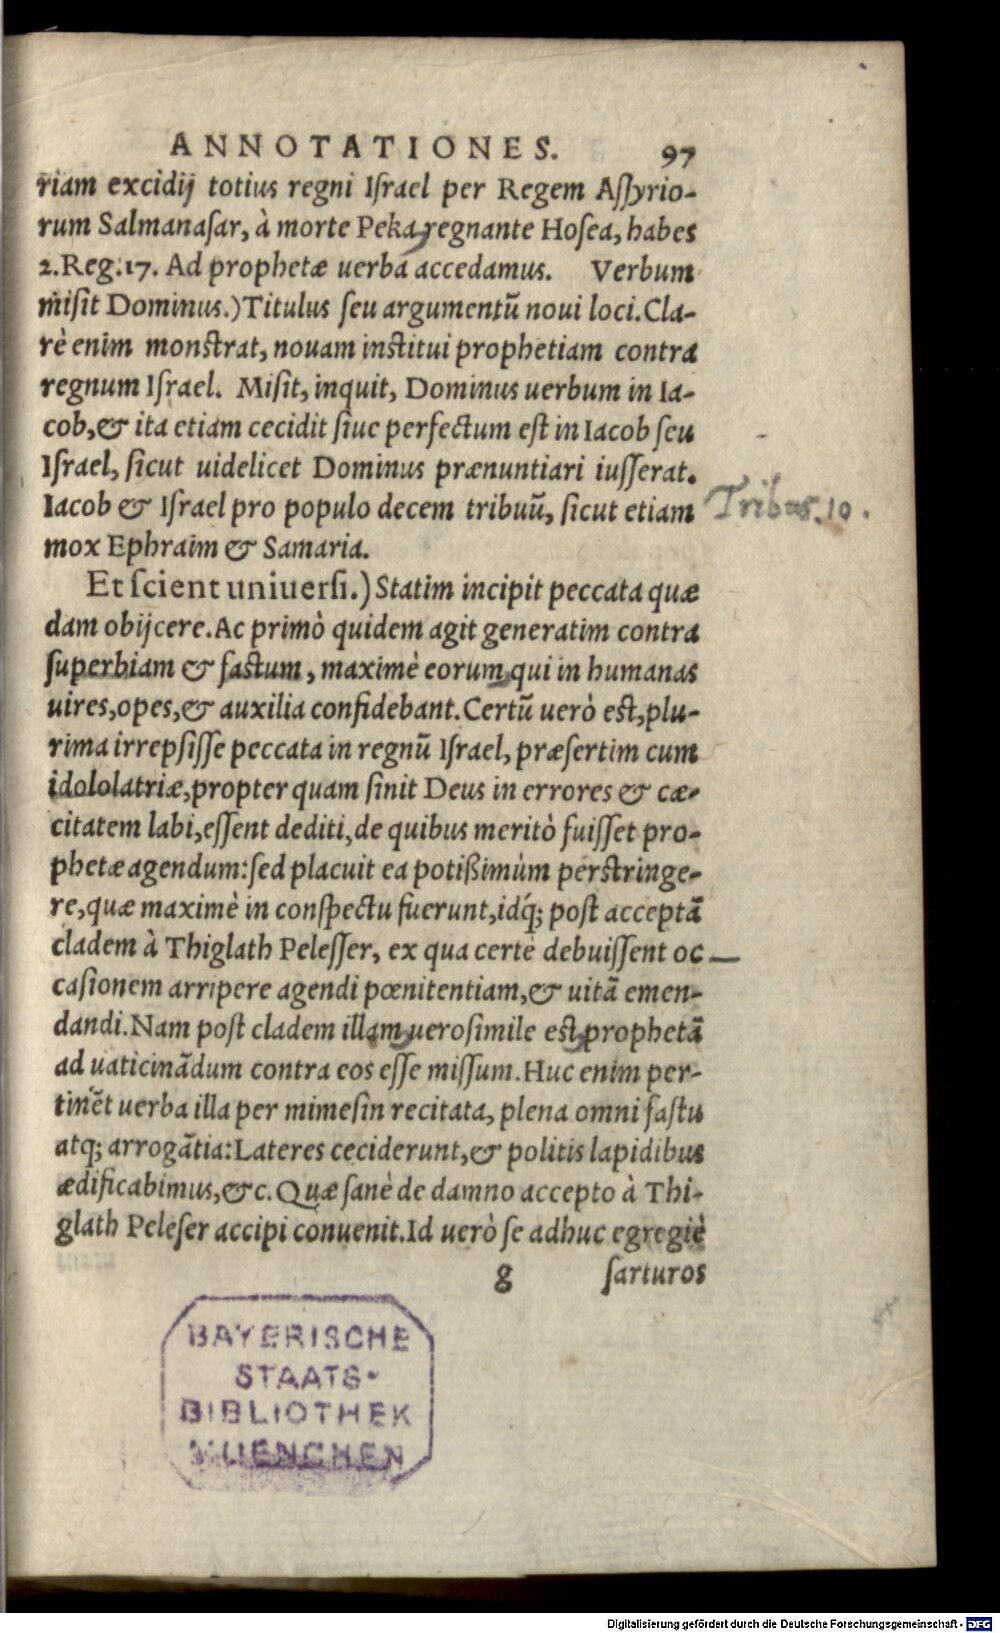 ANNOTATIONES. 97
riam excidij totius regni Iſrael per Regem Aſſyrio-
rum Salmanaſar, à morte Peka, regnante Hoſea, habes
2.Reg.17. Ad prophetæ uerba accedamus. Verbum
miſit Dominus.) Titulus ſeu argumentũ noui loci. Cla-
rè enim monſtrat, nouam inſtitui prophetiam contra
regnum Iſrael. Miſit, inquit, Dominus uerbum in Ia-
cob, & ita etiam cecidit ſiue perfectum eſt in Iacob ſeu
Iſrael, ſicut uidelicet Dominus prænuntiari iuſſerat.
Iacob & Iſrael pro populo decem tribuũ, ſicut etiam
Tribus. 10.
mox Ephraim & Samaria.
Et ſcient uniuerſi.) Statim incipit peccata quæ
dam obijcere. Ac primò quidem agit generatim contra
ſuperbiam & faſtum, maximè eorum, qui in humanas
uires, opes, & auxilia confidebant. Certũ uerò eſt, plu-
rima irrepſiſſe peccata in regnũ Iſrael, præſertim cum
idololatriæ, propter quam ſinit Deus in errores & cæ-
citatem labi, eſſent dediti, de quibus meritò fuiſſet pro-
phetæ agendum: ſed placuit ea potißimùm perſtringe-
re, quæ maximè in conſpectu fuerunt, idq́; poſt acceptã
cladem à Thiglath Peleſſer, ex qua certè debuiſſent oc
caſionem arripere agendi pœnitentiam, & uitã emen-
dandi. Nam poſt cladem illam, ueroſimile eſt, prophetã
ad uaticinãdum contra eos eſſe miſſum. Huc enim per-
tinẽt uerba illa per mimeſin recitata, plena omni faſtu
atq; arrogãtia: Lateres ceciderunt, & politis lapidibus
ædificabimus, &c. Quæ ſanè de damno accepto à Thi-
glath Peleſer accipi conuenit. Id uerò ſe adhuc egregiè
g ſarturos
BAYERISCHE
STAATS-
BIBLIOTHEK
MUENCHEN
Digitalisierung gefördert durch die Deutsche Forschungsgemeinschaft - DFG